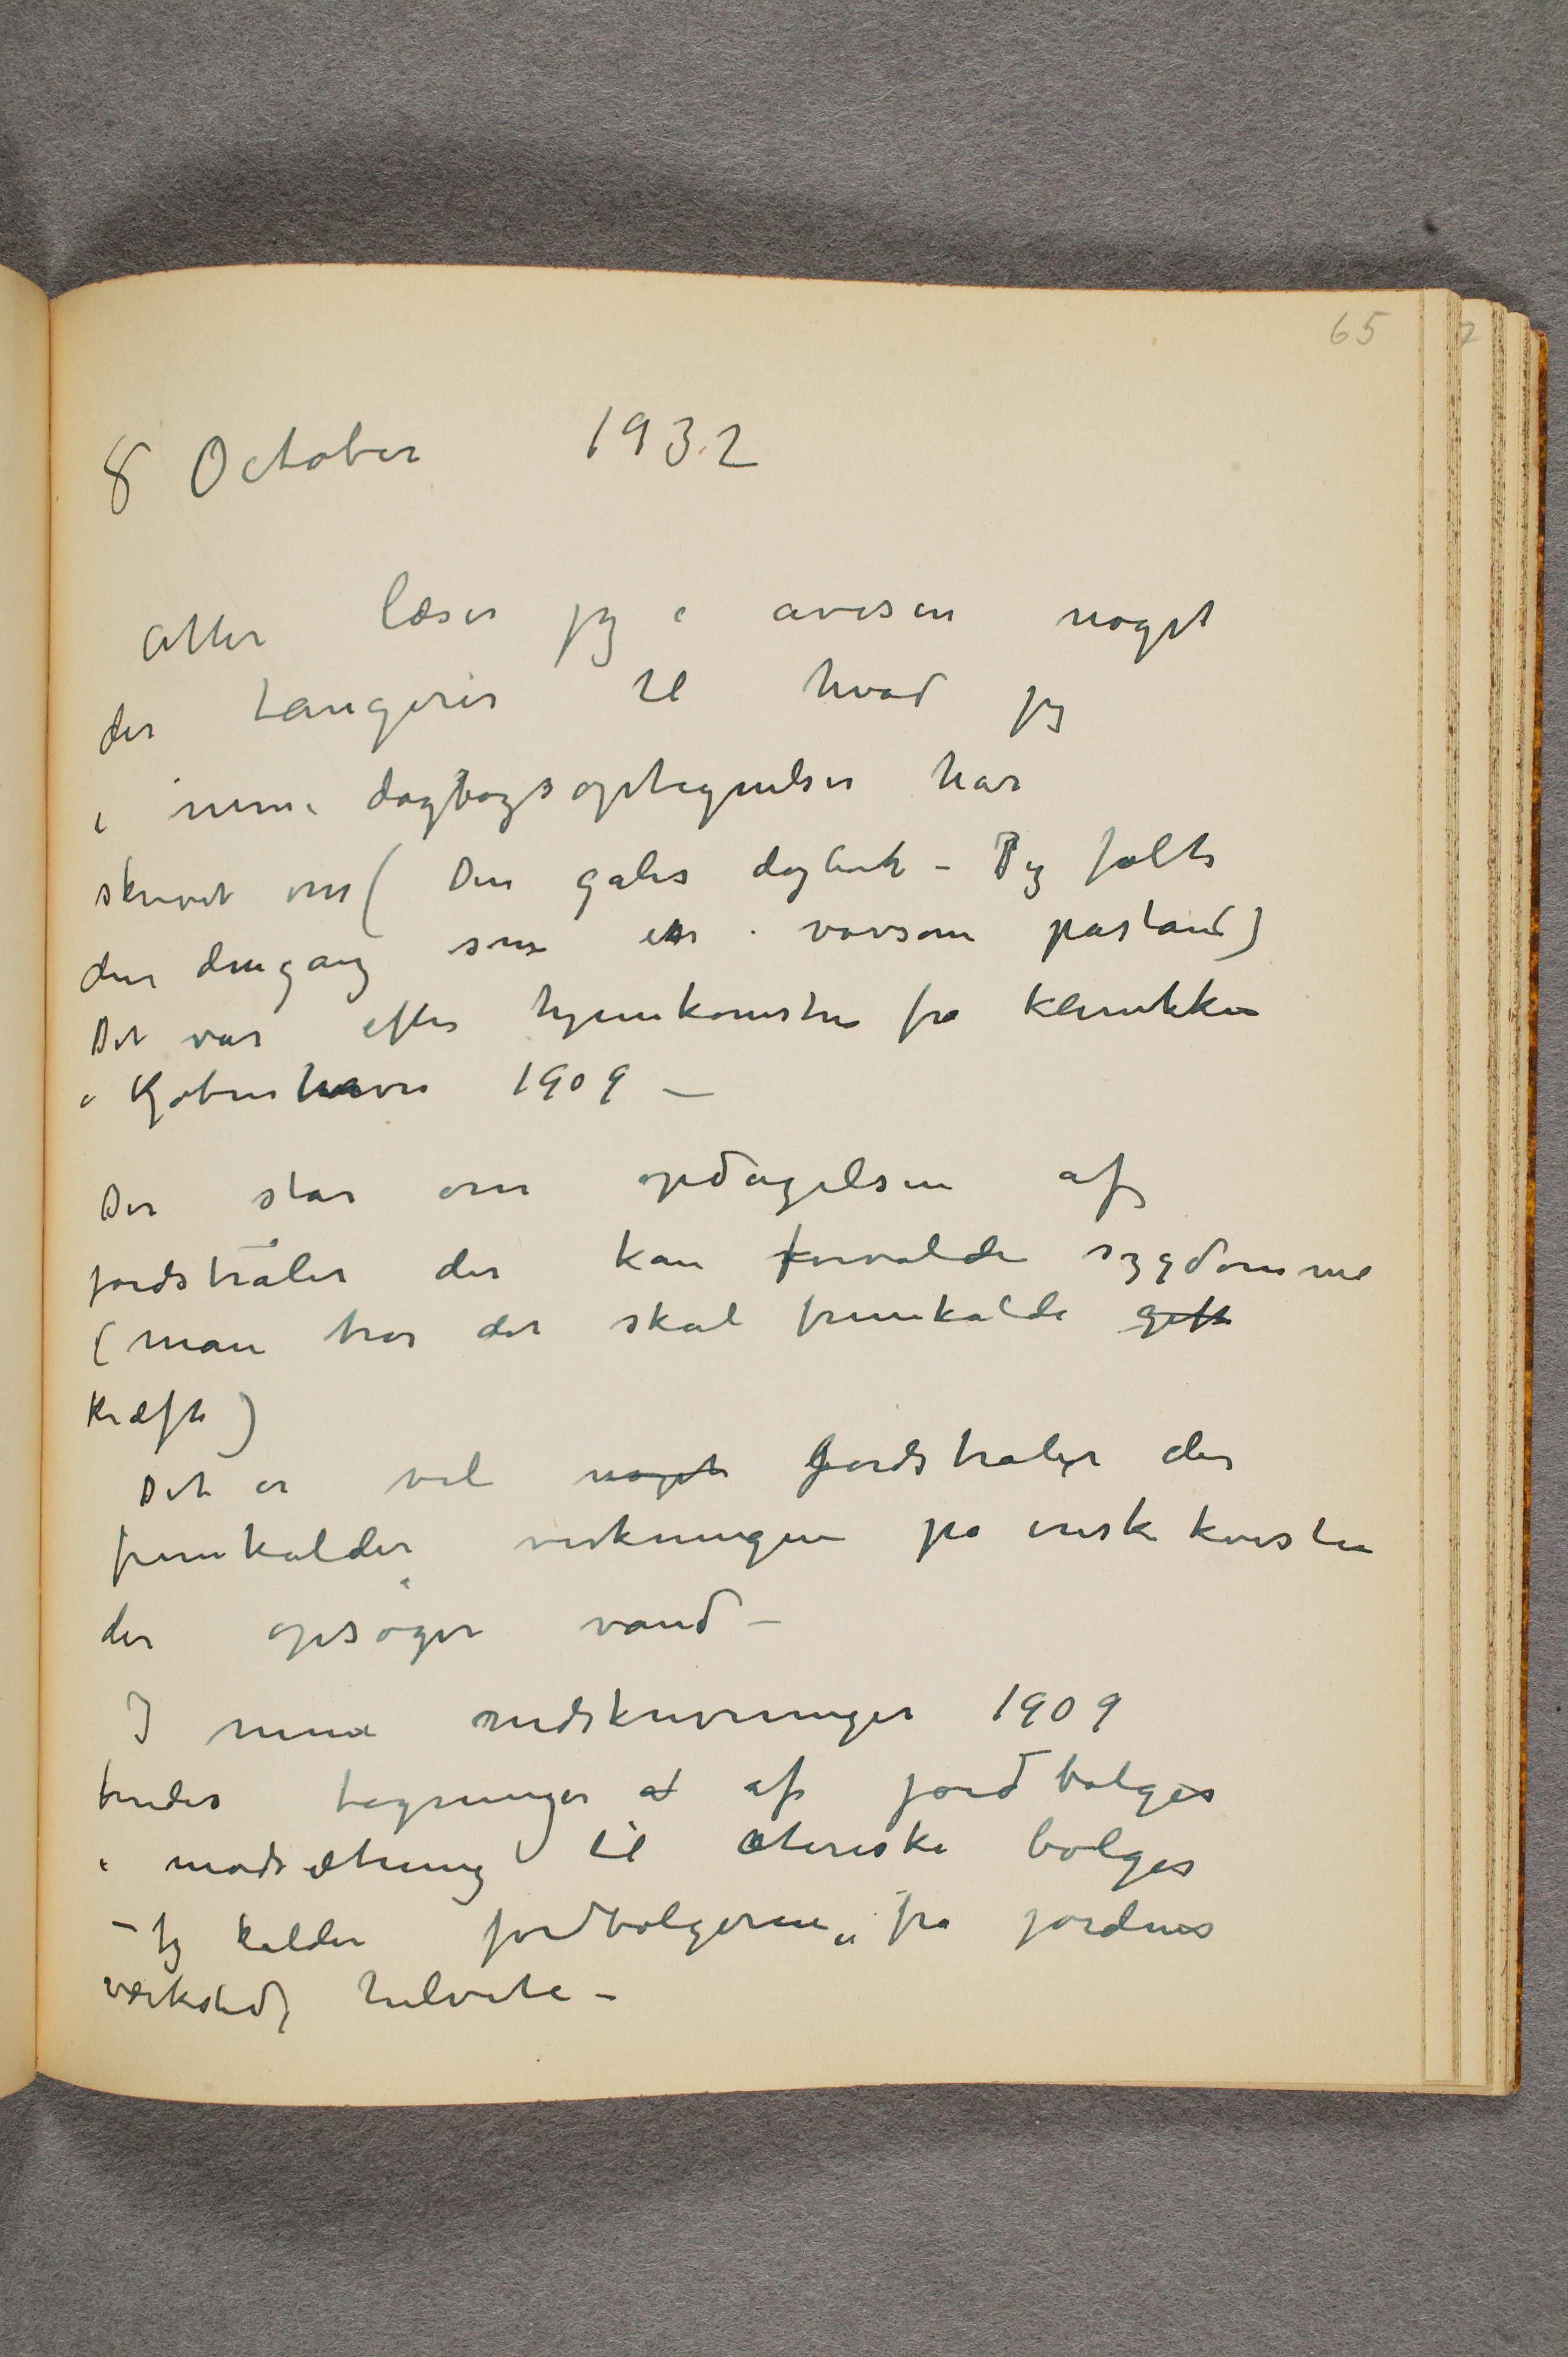 65
8 October 1932
Atter læser jeg i avisen noget
der tangerer til hvad jeg
i mine dagbogsoptegnelser har
skrevet om (Den gales dagbok – Jeg følte
den dengang som en vovsom påstand)
Det var efter hjemkomsten fra klinikken
i Kjøbenhavn 1909 –
Der står om opdagelsen af
jordstråler der kan forvolde sygdomme
(man tror det skal fremkalde gift
kræft)
Det er vel noget Jordstråler der
fremkalder virkningen på ønskekvisten
der opsøger vand –
I mine nedskrivninger 1909
findes tegninger at af jordbølger
i modsætning til æteriske bølger
– Jeg kalder jordbølgerne fra jordens
værksted, helvete –